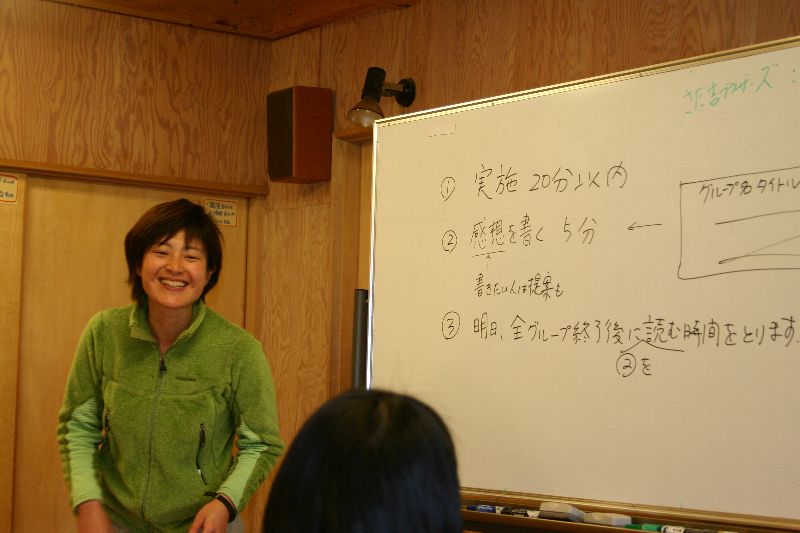 ① 実施 20分以内
② 感想を書く 5分 ←
グループ名 タイトル
書きたい人は提案も
③ 明日、全グループ終了後に読む時間をとります。
②を